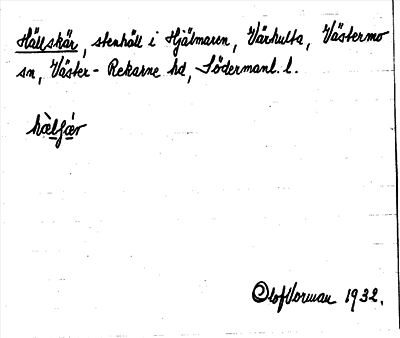 Hällskär, stenhäll i Hjälmaren, Värhulta, Västermo
sn, Väster-Rekarne hd, Södermanl. l.
hàlʃær
Olof Vorman 1932.